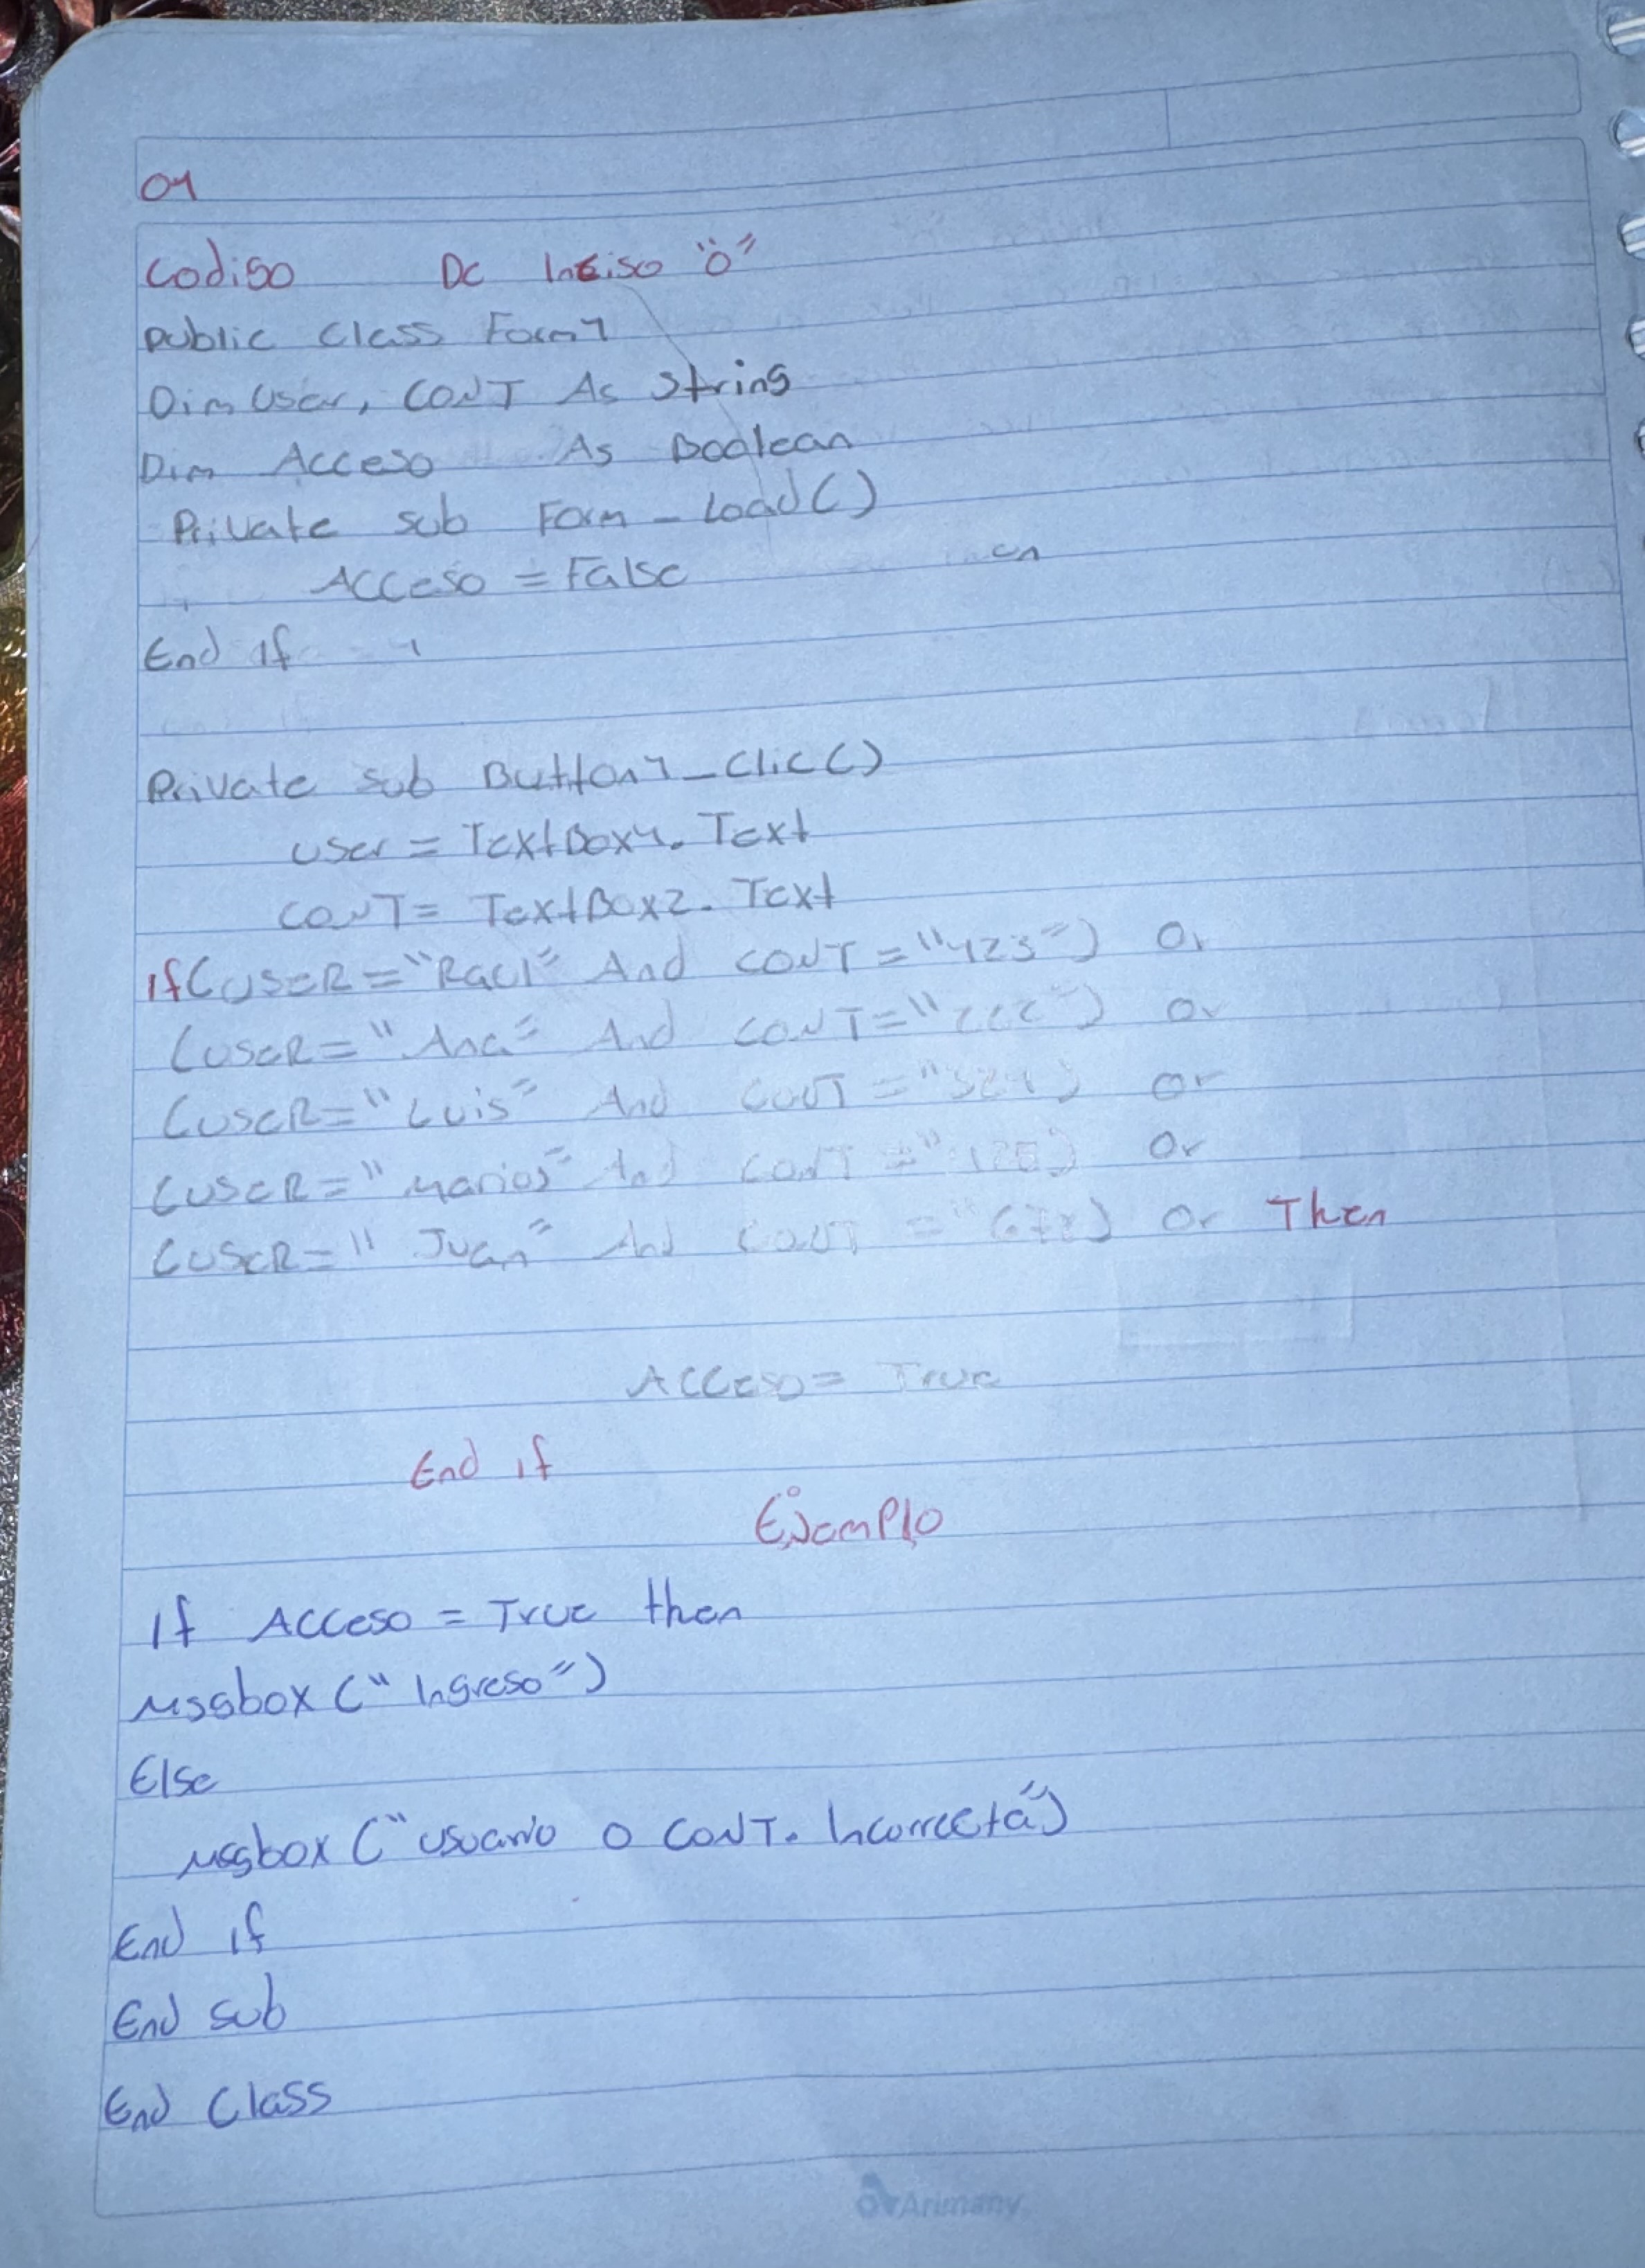 01
Codigo De Inciso "o"
Public Class Form1
Dim User, CONT As String
Dim Acceso As Boolean
Private sub Form_Load()
Acceso = False
End if
Private sub Button1_Clic()
user = TextBox1. Text
CONT = TextBox2. Text
if(USER="Raul" And CONT="123") Or
(USER="Ana" And CONT="222") Or
(USER="Luis" And CONT="321) or
(USER="Marios" And CONT=" Or
(USER="Juan" And CONT="678) Or Then
Acceso= True
End if
Ejemplo
If Acceso = True then
Msgbox ("Ingreso")
Else
Msgbox ("usuario o CONT. Incorrecta")
End if
End sub
End Class
Arimany